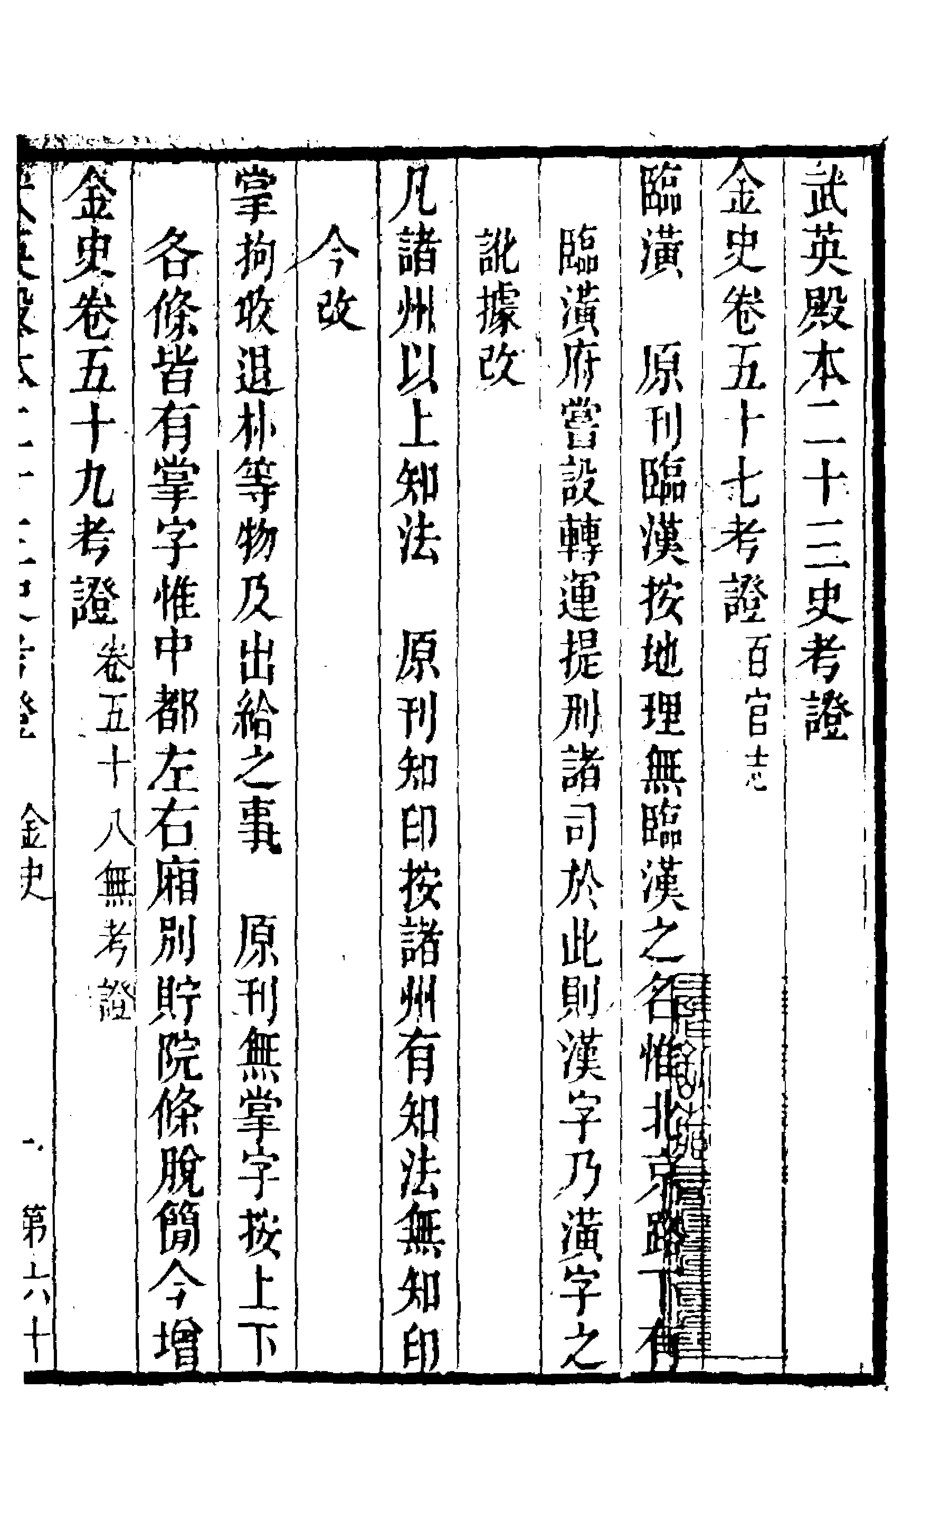 武英殿本二十三史考證
金史卷五十七考證百官志
臨潢　原刊臨漢按地理無臨漢之名惟北京路下有
臨潢府嘗設轉運提刑諸司於此則漢字乃潢字之
訛據改
凡諸州以上知法　原刊知印按諸州有知法無知印
今改
掌拘收退朴等物及出給之事　原刊無掌字按上下
各條皆有掌字惟中都左右廂別貯院條脫簡今增
金史卷五十九考證卷五十八無考證
金史　一　第六十